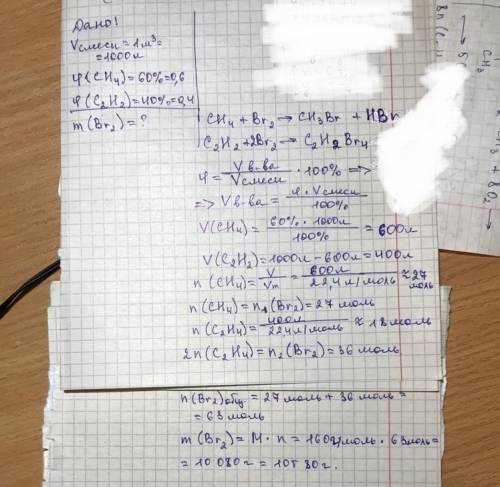 Дано!
Vсмеси = 1м³ =
= 1000л
φ(CH₄) = 60% = 0,6
φ(C₂H₂) = 40% = 0,4
m(Br₂) = ?
CH₄ + Br₂ → CH₃Br + HBr
C₂H₂ + 2Br₂ → C₂H₂Br₄
φ = Vв-ва / Vсмеси · 100% =>
=> Vв-ва = φ · Vсмеси / 100%
V(CH₄) = 60% · 1000л / 100% = 600л
V(C₂H₂) = 1000л - 600л = 400л
n(CH₄) = V / Vm = 600л / 22,4 л/моль ≈ 27 моль
n(CH₄) = n₁(Br₂) = 27 моль
n(C₂H₄) = 400л / 22,4 л/моль ≈ 18 моль
2n(C₂H₄) = n₂(Br₂) = 36 моль
n(Br₂)общ. = 27 моль + 36 моль =
= 63 моль
m(Br₂) = M · n = 160 г/моль · 63 моль =
= 10 080 г = 10 80 г.
CH₃
+ 8O₂ →